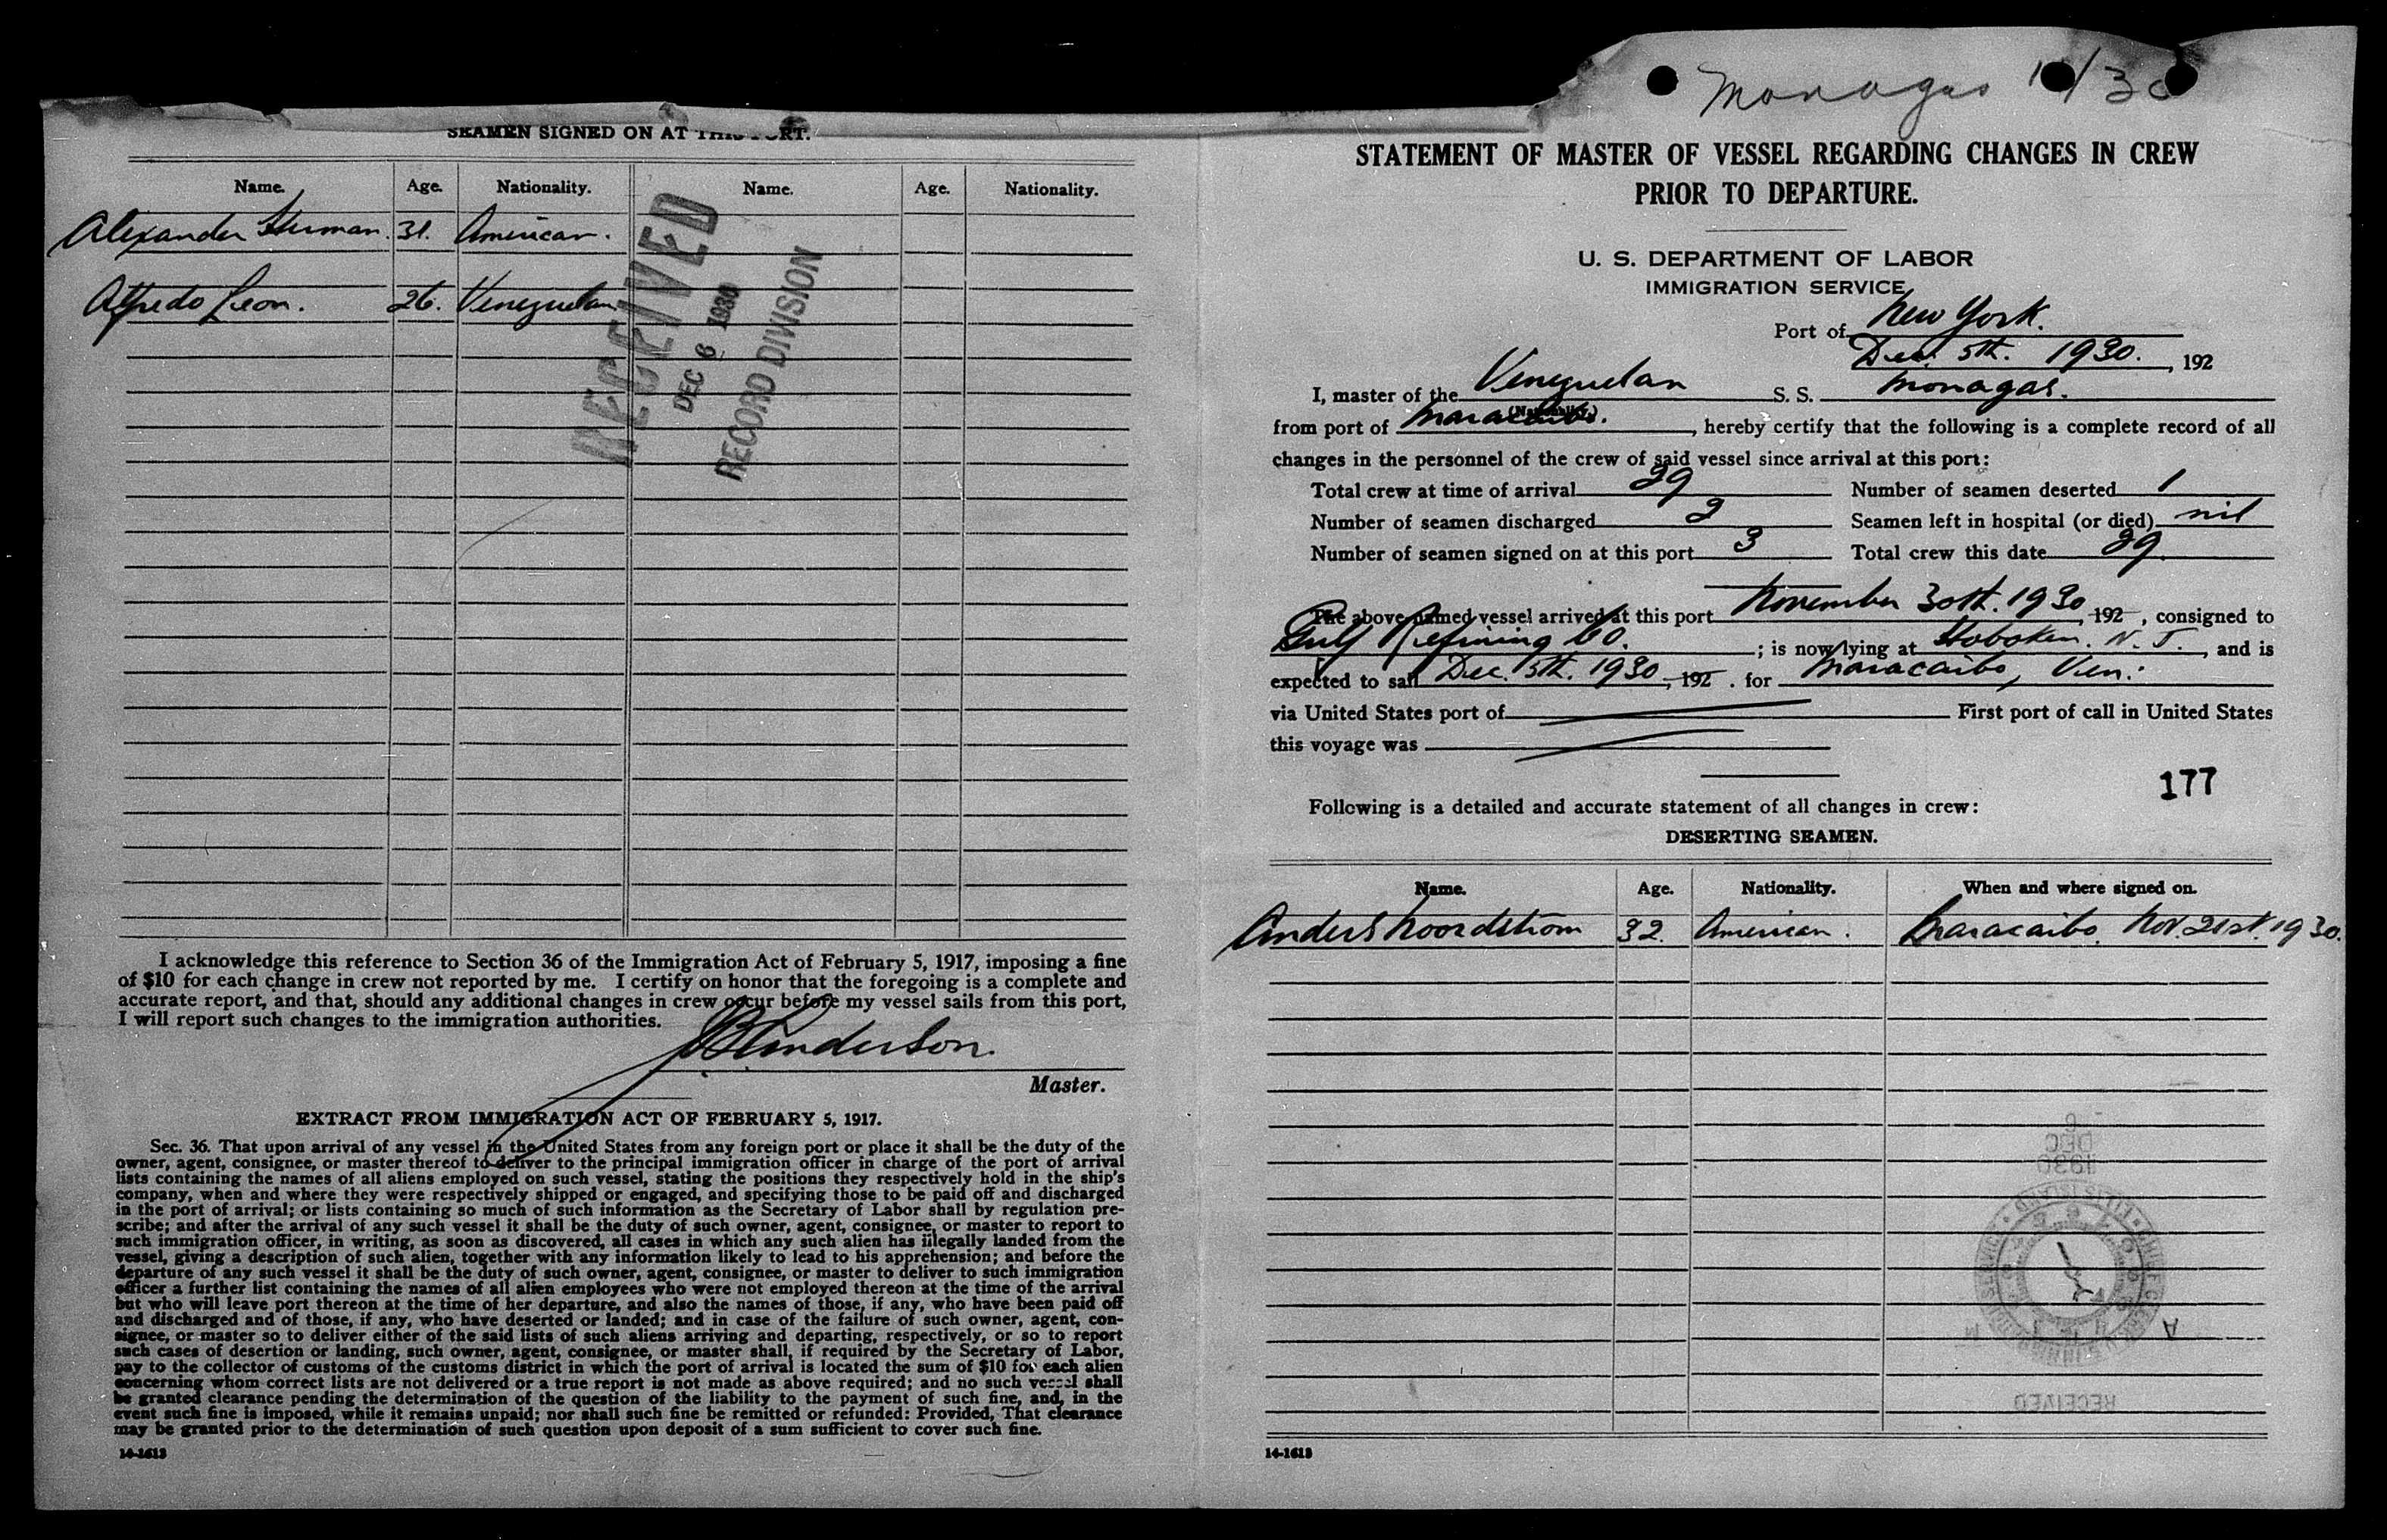 SEAMEN SIGNED ON AT THIS PORT.
Name. Age. Nationality. Name. Age. Nationality.
Alexander Herman. 31. American.
Alfredo Leon. 26. Venezuelan
RECEIVED
DEC 6 1930
RECORD DIVISION
I acknowledge this reference to Section 36 of the Immigration Act of February 5, 1917, imposing a fine
of $10 for each change in crew not reported by me. I certify on honor that the foregoing is a complete and
accurate report, and that, should any additional changes in crew occur before my vessel sails from this port,
I will report such changes to the immigration authorities.
Anderson.
Master.
EXTRACT FROM IMMIGRATION ACT OF FEBRUARY 5, 1917.
Sec. 36. That upon arrival of any vessel in the United States from any foreign port or place it shall be the duty of the
owner, agent, consignee, or master thereof to deliver to the principal immigration officer in charge of the port of arrival
lists containing the names of all aliens employed on such vessel, stating the positions they respectively hold in the ship's
company, when and where they were respectively shipped or engaged, and specifying those to be paid off and discharged
in the port of arrival; or lists containing so much of such information as the Secretary of Labor shall by regulation pre-
scribe; and after the arrival of any such vessel it shall be the duty of such owner, agent, consignee, or master to report to
such immigration officer, in writing, as soon as discovered, all cases in which any such alien has illegally landed from the
vessel, giving a description of such alien, together with any information likely to lead to his apprehension; and before the
departure of any such vessel it shall be the duty of such owner, agent, consignee, or master to deliver to such immigration
officer a further list containing the names of all alien employees who were not employed thereon at the time of the arrival
but who will leave port thereon at the time of her departure, and also the names of those, if any, who have been paid off
and discharged and of those, if any, who have deserted or landed; and in case of the failure of such owner, agent, con-
signee, or master so to deliver either of the said lists of such aliens arriving and departing, respectively, or so to report
such cases of desertion or landing, such owner, agent, consignee, or master shall, if required by the Secretary of Labor,
pay to the collector of customs of the customs district in which the port of arrival is located the sum of $10 for each alien
concerning whom correct lists are not delivered or a true report is not made as above required; and no such vessel shall
be granted clearance pending the determination of the question of the liability to the payment of such fine, and, in the
event such fine is imposed, while it remains unpaid; nor shall such fine be remitted or refunded: Provided, That clearance
may be granted prior to the determination of such question upon deposit of a sum sufficient to cover such fine.
14-1613
Monagas
STATEMENT OF MASTER OF VESSEL REGARDING CHANGES IN CREW
PRIOR TO DEPARTURE.
U. S. DEPARTMENT OF LABOR
IMMIGRATION SERVICE
Port of New York.
Dec. 5th. 1930., 192
I, master of the Venezuelan S. S. Monagas.
(Nationality.)
from port of Maracaibo., hereby certify that the following is a complete record of all
changes in the personnel of the crew of said vessel since arrival at this port:
Total crew at time of arrival 29 Number of seamen deserted 1
Number of seamen discharged 2 Seamen left in hospital (or died) nil
Number of seamen signed on at this port 3 Total crew this date 29.
The above-named vessel arrived at this port November 30th. 1930, 192 , consigned to
Gulf Refining Co. ; is now lying at Hoboken. N. J. , and is
expected to sail Dec. 5th. 1930, 192 . for Maracaibo, Ven:
via United States port of First port of call in United States
this voyage was
177
Following is a detailed and accurate statement of all changes in crew:
DESERTING SEAMEN.
Name. Age. Nationality. When and where signed on.
Anders Noordstrom 32. American. Maracaibo. Nov. 21st. 1930.
6
DEC
1930
RECEIVED
14-1613